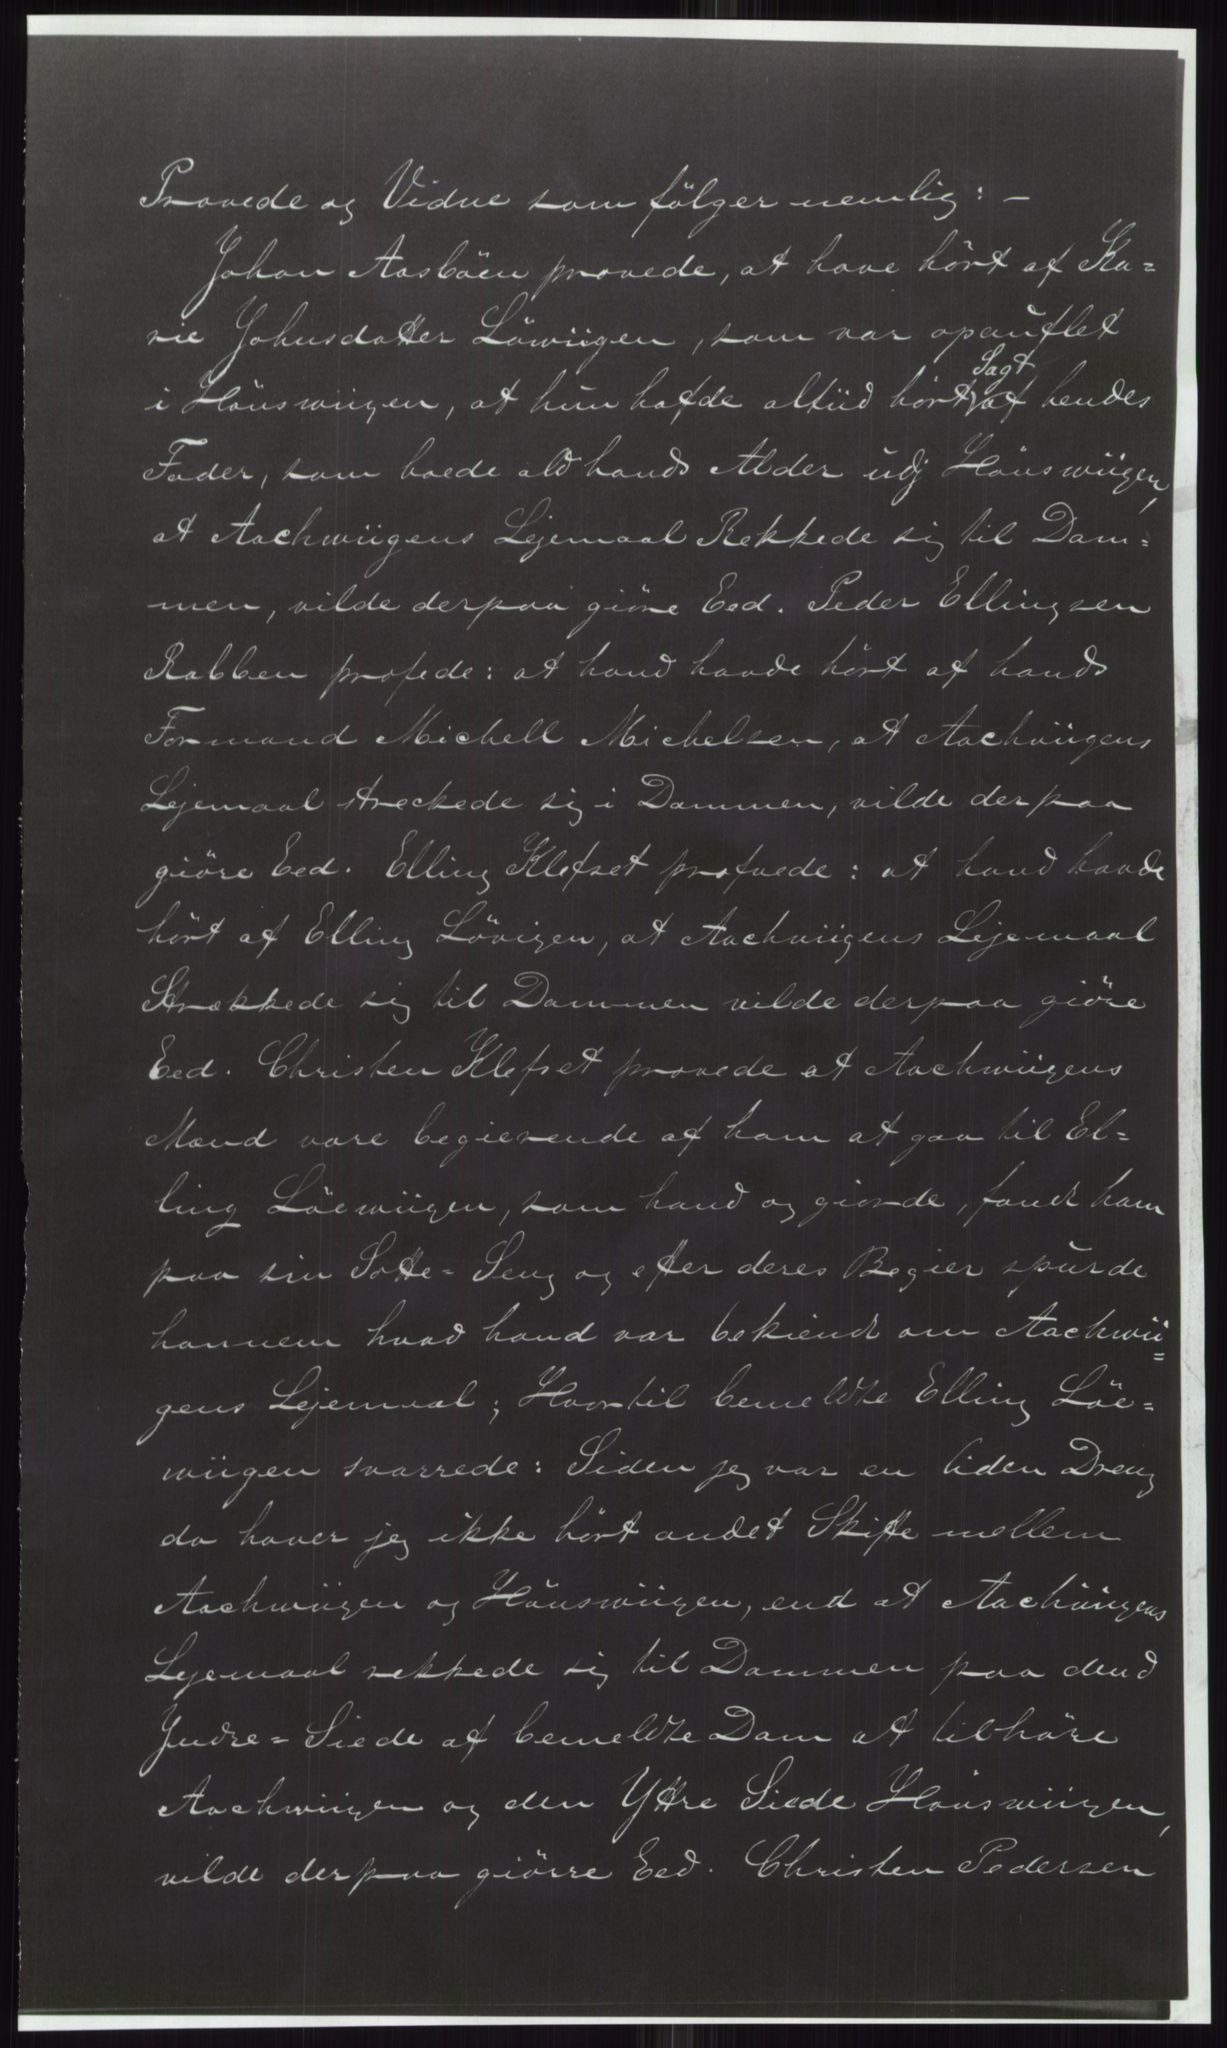 Provede og Vidne som fölger nemlig: —
Johan Aasböen provede, at have hört af Ka=
rie Johnsdatter Löwiigen, som var opaüflet
i Höüswiigen, at hün hafde altiid hört Sagt af hendes
Fader, som boede ald hands Alder üdj Höüswiigen,
at Aachwiigens Lejemaal Rekkede sig til Dam=
men, vilde derpaa giöre Eed. Peder Ellingsen
Rabben profede: at hand havde hört af hands
Formand Michell Michelsen, at Aachwiigens
Lejemaal streckede sig i Dammen, vilde derpaa
giöre Eed. Elling Klefset profvede: at hand havde
hört af Elling Lövigen, at Aachwiigens Lejemaal
Strækkede sig til Dammen vilde derpaa giöre
Eed. Christen Klefset provede at Aachwiigens
Mænd vare begierende af ham at gaa til El=
ling Löewiigen, som hand og giorde, fandt ham
paa sin Sotte=Seng og efter deres Begier spürde
hannem hvad hand var bekiendt om Aachwii=
gens Lejemaal; Hvortil bemeldte Elling Löe=
wiigen svarrede: Siden jeg var en liden Dreng
da haver jeg ikke hört andet Skifte mellem
Aachwiigen og Höüswiigen, end at Aachwiigens
Lejemaal rekkede sig til Dammen paa dend
Yndre=Siede af bemeldte Dam at tilhöre
Aachwiigen og den Yttre Siede Höüswiigen,
vilde derpaa giörre Eed. Christen Pedersen